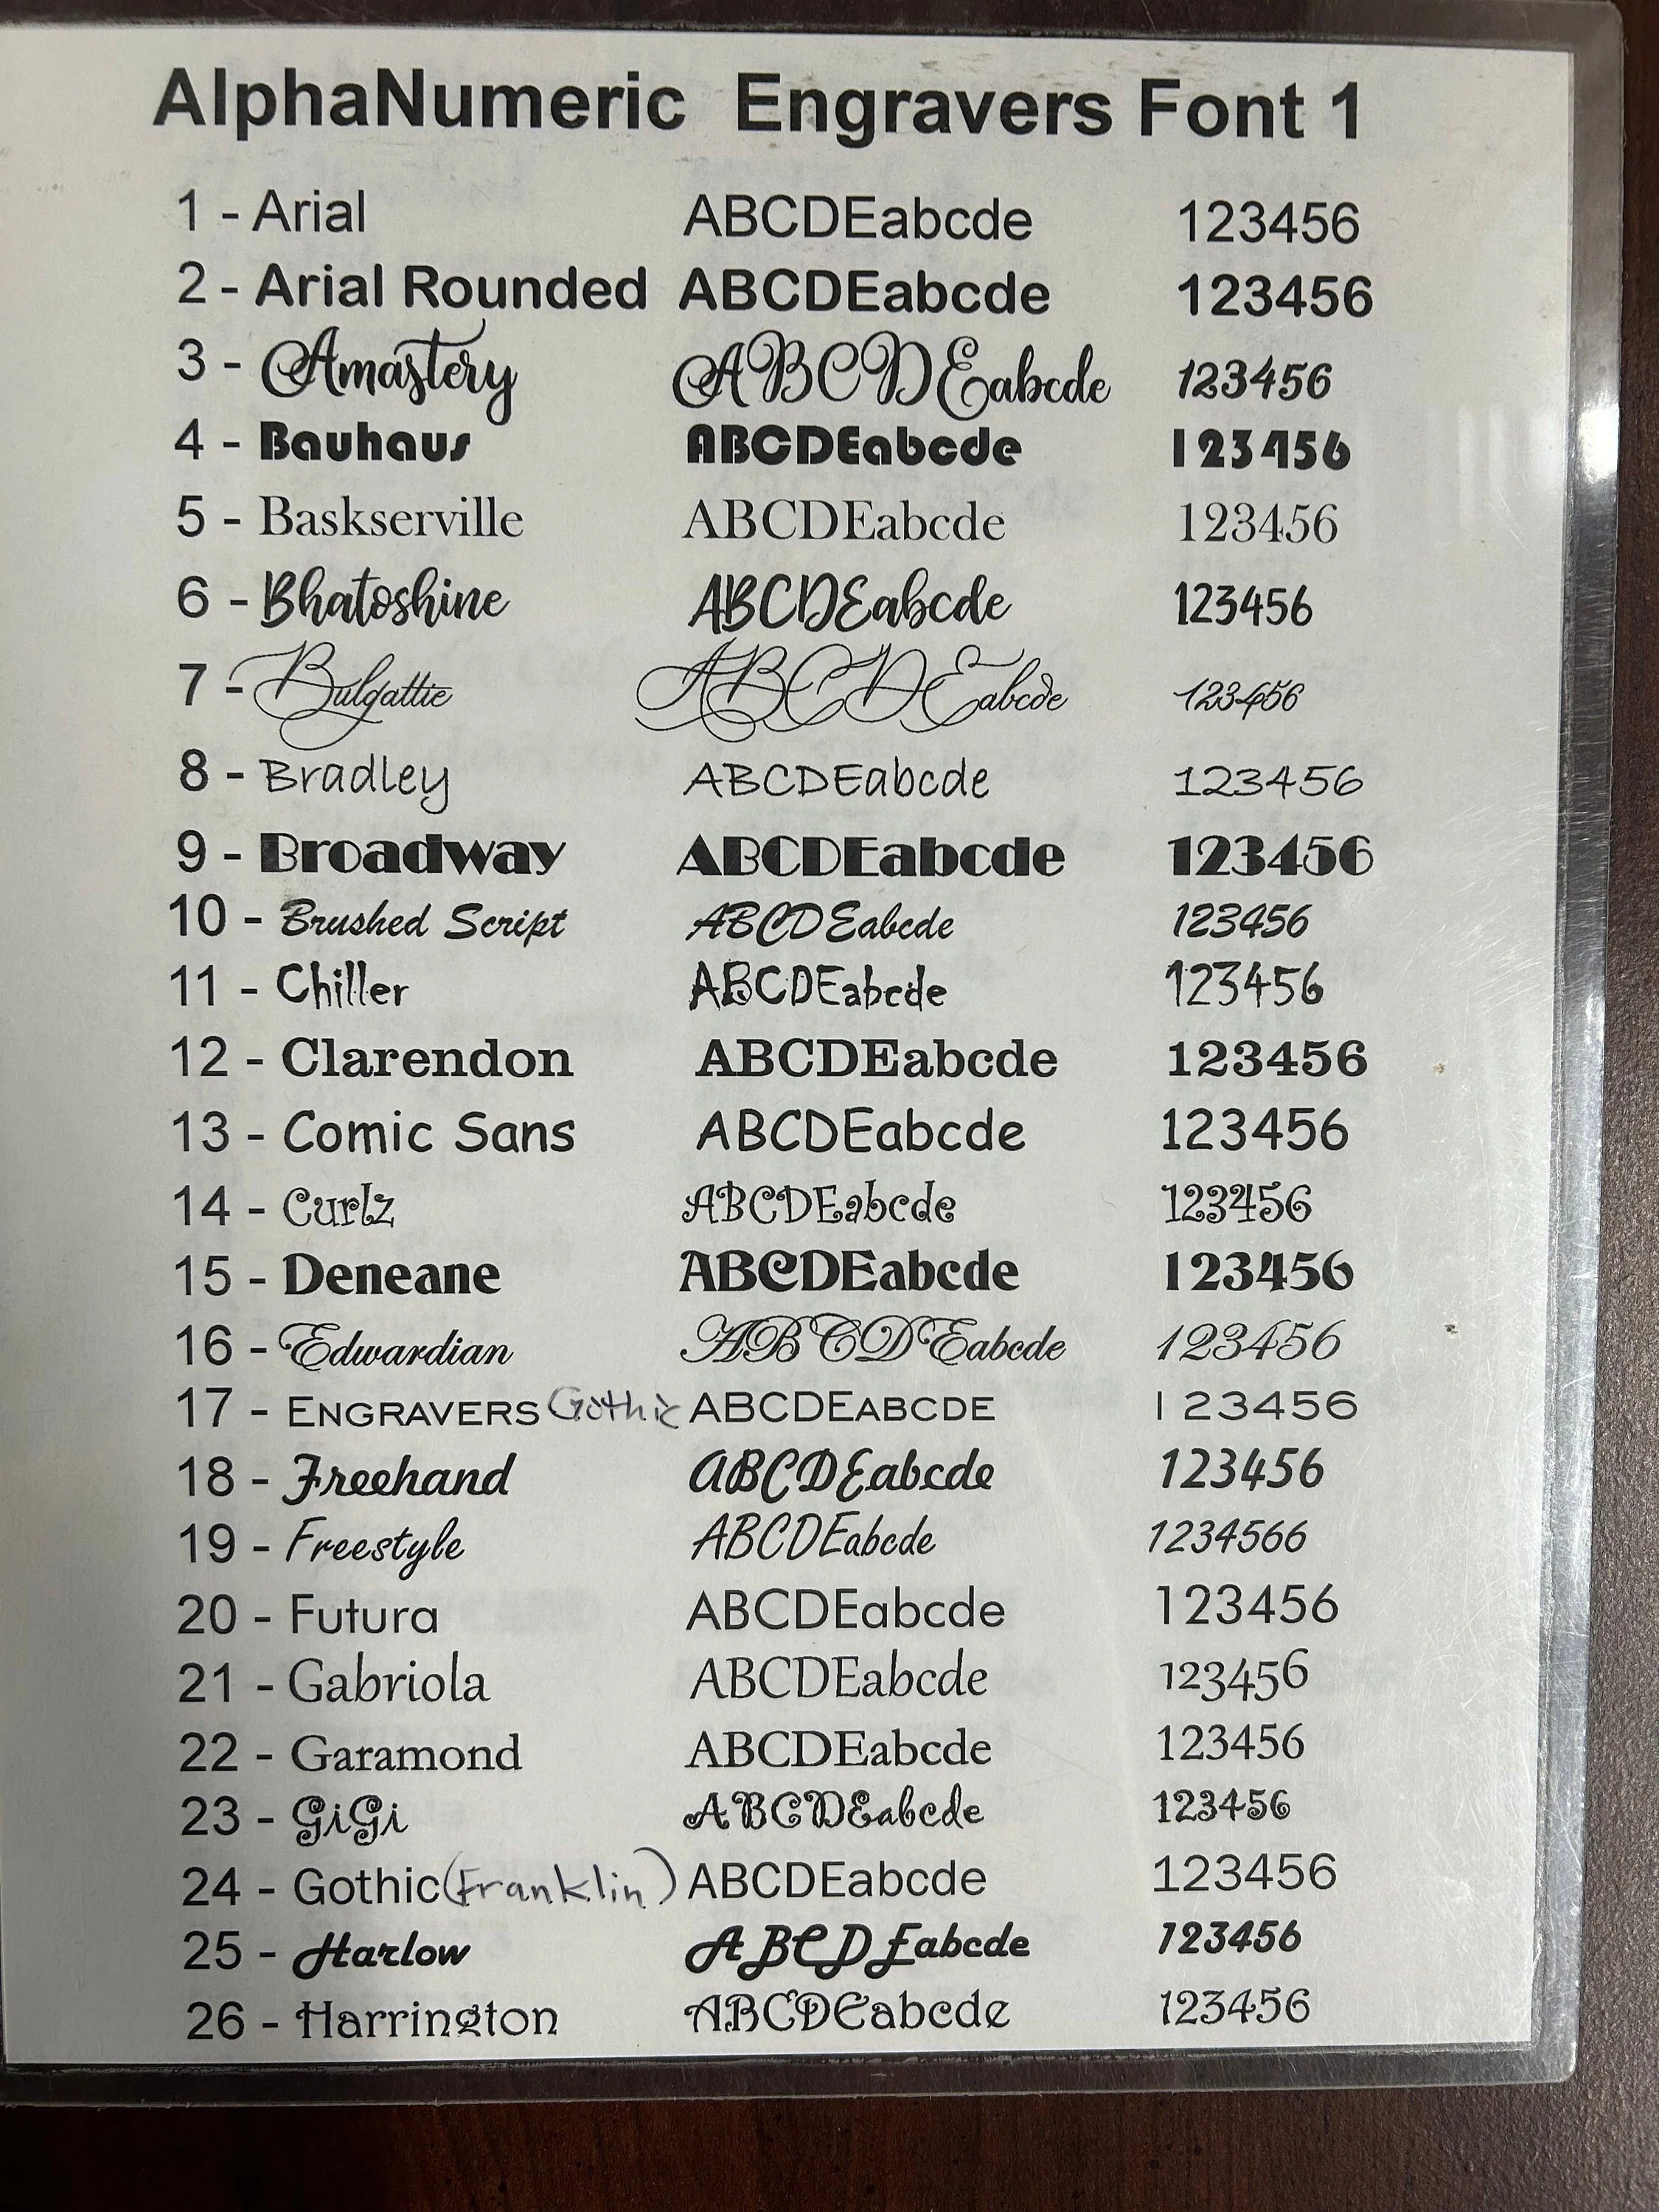 AlphaNumeric Engravers Font 1
1 - Arial ABCDEabcde 123456
2 - Arial Rounded ABCDEabcde 123456
3 - Amastery ABCDEabcde 123456
4 - Bauhaus ABCDEabcde 123456
5 - Baskserville ABCDEabcde 123456
6 - Bhatoshine ABCDEabcde 123456
7 - Bulgattie ABCDEabcde 123456
8 - Bradley ABCDEabcde 123456
9 - Broadway ABCDEabcde 123456
10 - Brushed Script ABCDEabcde 123456
11 - Chiller ABCDEabcde 123456
12 - Clarendon ABCDEabcde 123456
13 - Comic Sans ABCDEabcde 123456
14 - Curlz ABCDEabcde 123456
15 - Deneane ABCDEabcde 123456
16 - Edwardian ABCDEabcde 123456
17 - ENGRAVERS Gothic ABCDEABCDE 123456
18 - Freehand ABCDEabcde 123456
19 - Freestyle ABCDEabcde 1234566
20 - Futura ABCDEabcde 123456
21 - Gabriola ABCDEabcde 123456
22 - Garamond ABCDEabcde 123456
23 - GiGi ABCDEabcde 123456
24 - Gothic (Franklin) ABCDEabcde 123456
25 - Harlow ABCDEabcde 123456
26 - Harrington ABCDEabcde 123456